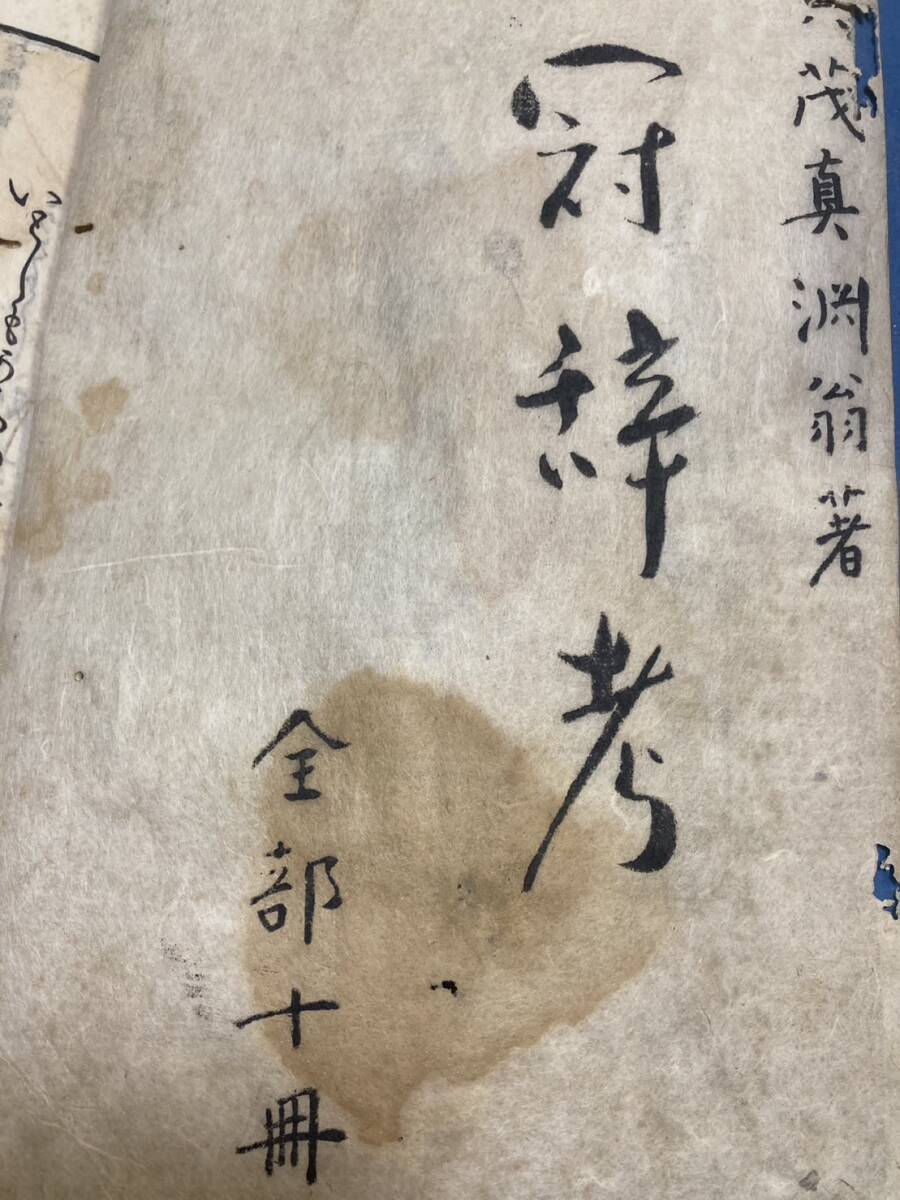 茂真渊翁著
冠辞考
全部十冊